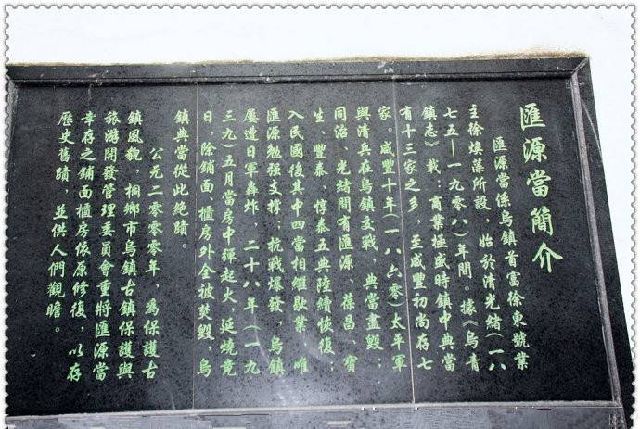 匯源當簡介
匯源當係烏鎮首富徐東號業
主徐煥藻所設,始於清光緒(一八
七五—一九〇八)年間。據《烏青
鎮志》載:商業極盛時鎮中典當
有十三家之多,至咸豐初尚存七
家。咸豐十年(一八六零)太平軍
與清兵在烏鎮交戰,典當盡毀;
同治、光緒間有匯源、葆昌、寶
生、豐泰、惇泰五典陸續恢復;
入民國後其中四當相繼歇業,唯
匯源勉強支撐;抗戰爆發,烏鎮
屢遭日軍轟炸,二十八年(一九
三九)五月當房中彈起火,延燒竟
日,除鋪面、櫃房外全被焚毀,烏
鎮典當從此絕蹟。
公元二零零零年,為保護古
鎮風貌,桐鄉市烏鎮古鎮保護與
旅游開發管理委員會重將匯源當
幸存之鋪面櫃房復原修復,以存
歷史舊蹟,並供人們觀瞻。